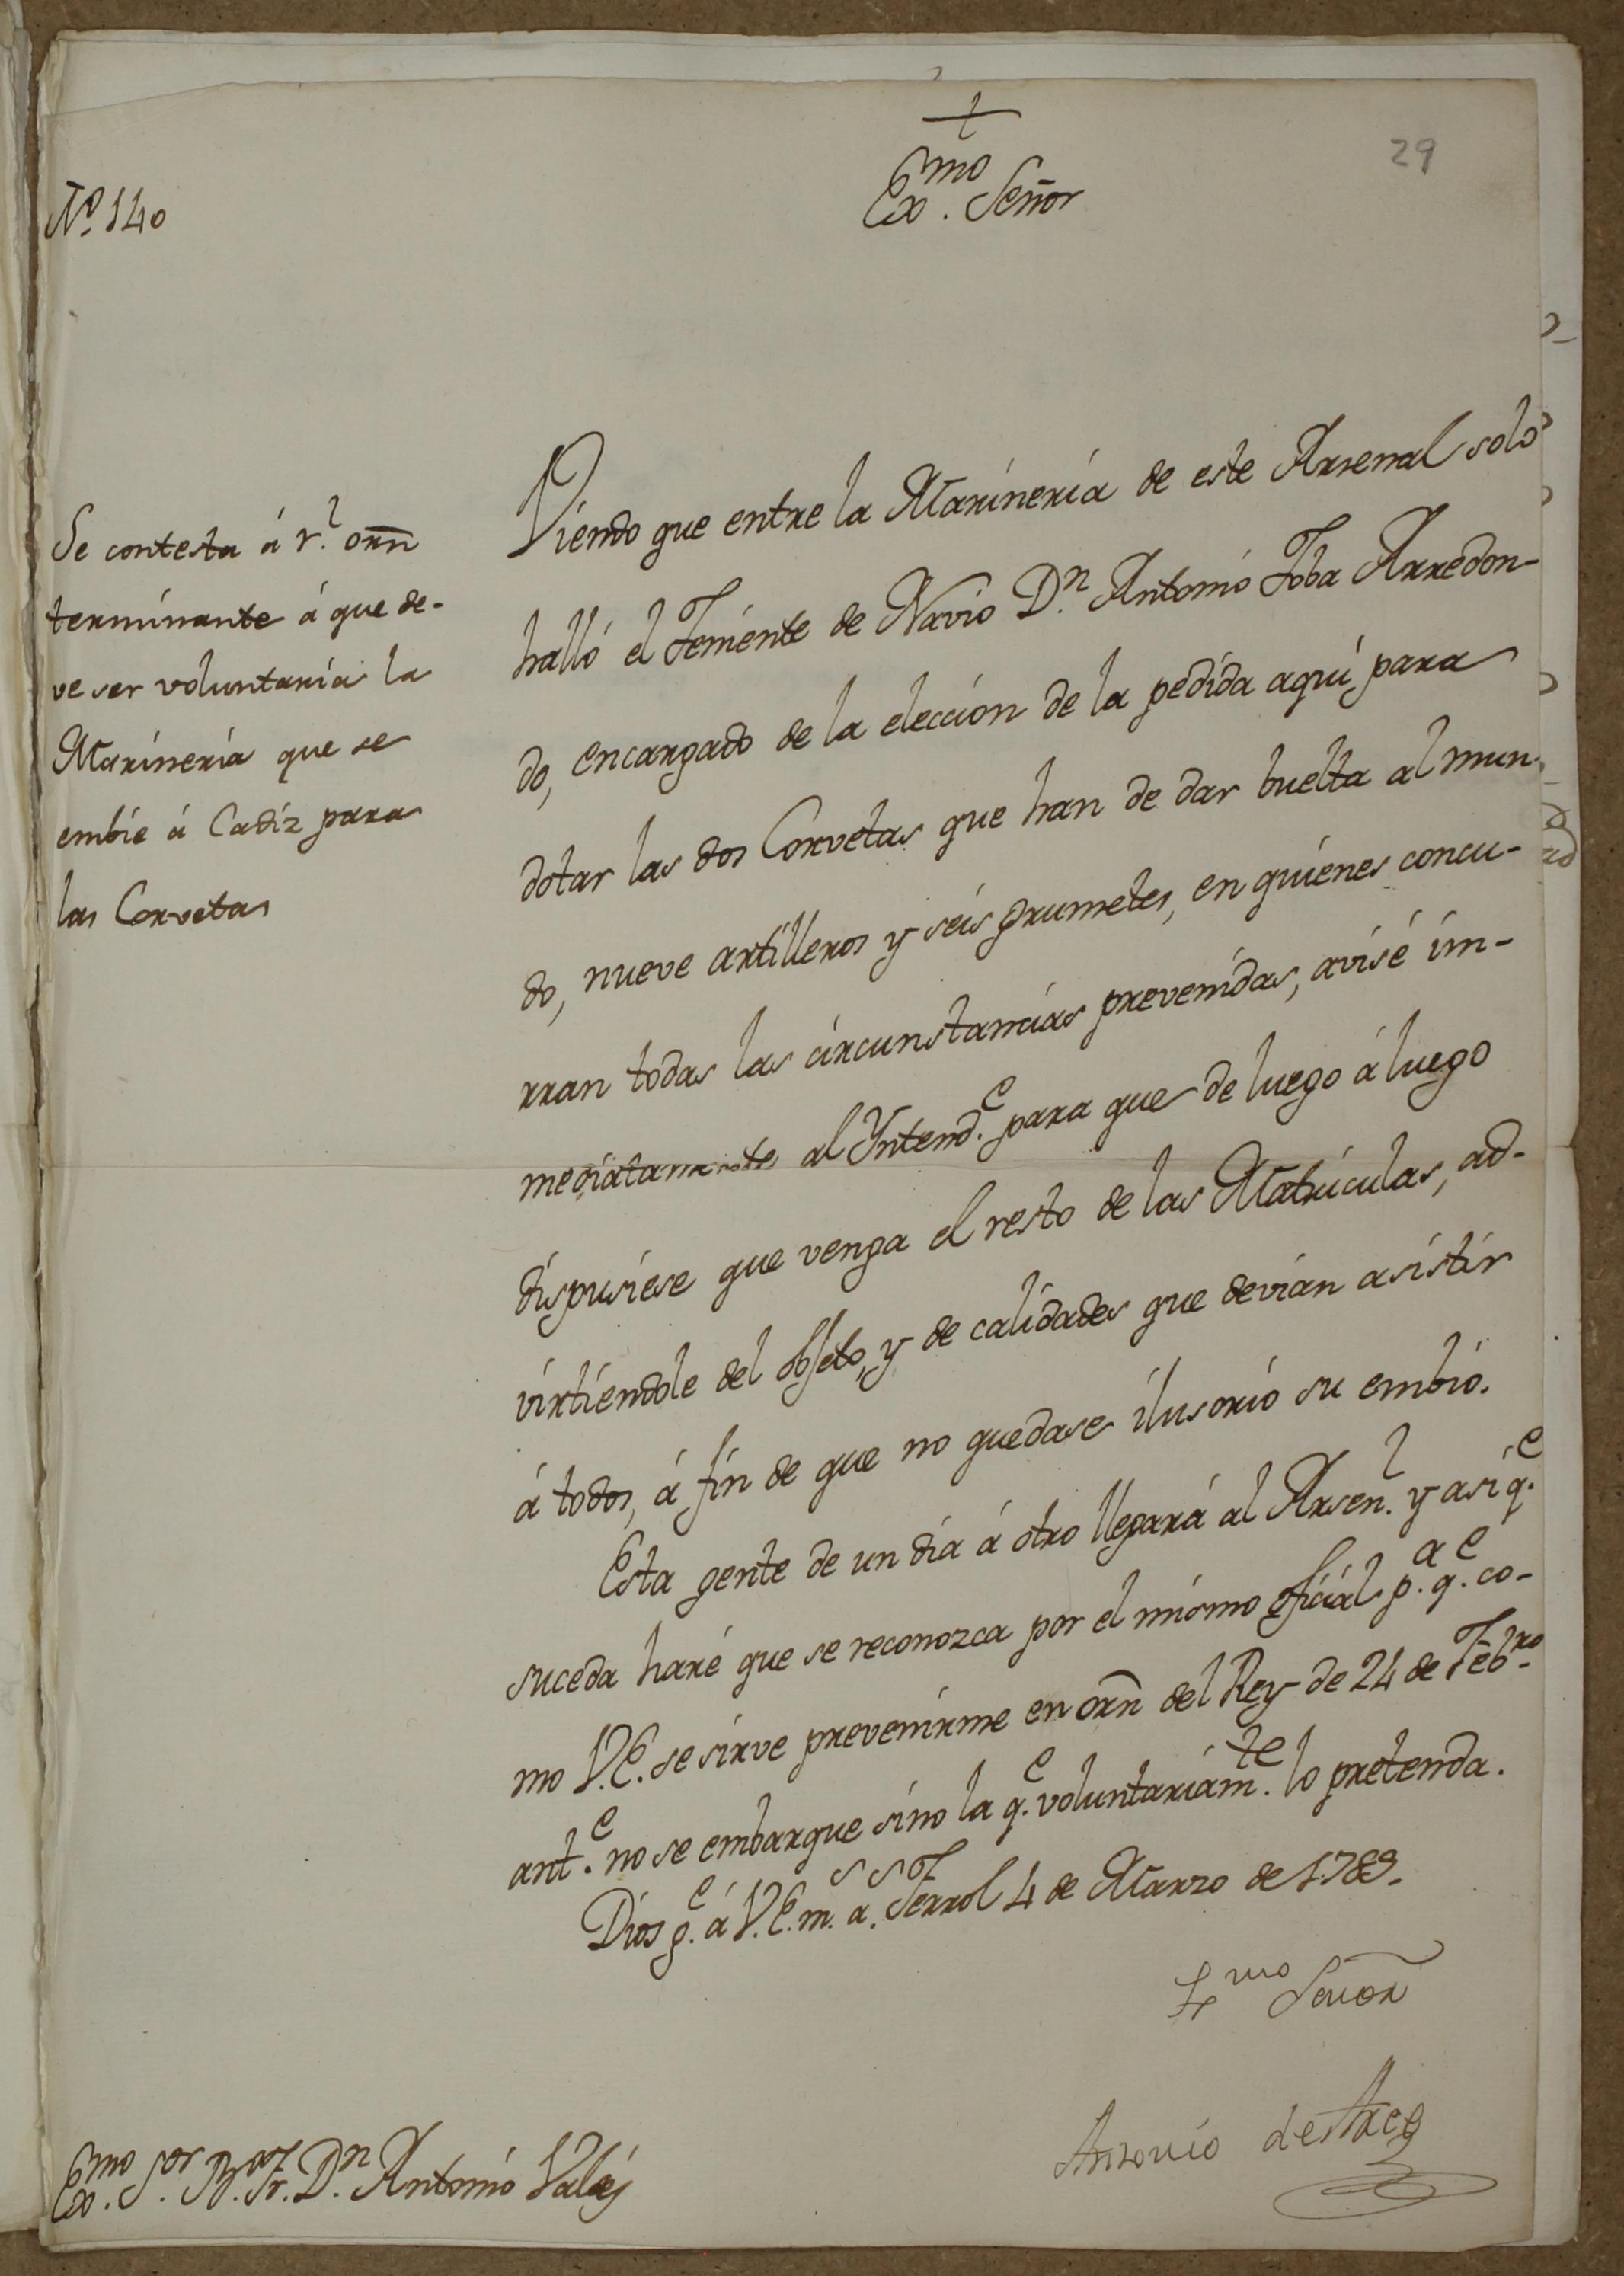 29
Exmo. Señor
No. 140
Se contesta á rl. orñ
terminante á que de-
ve ser voluntaria la
Marineria que se
embie á Cadiz para
las Corvetas
Viendo que entre la Marinería de este Arsenal solo
halló el Teniente de Navio Dn. Antonio Toba Arredon-
do, encargado de la elección de la pedida aquí para
dotar las dos Corvetas que han de dar buelta al mun-
do, nueve artilleros y seis grumetes, en quienes concu-
rran todas las circunstancias prevenidas, avisé im-
mediatamente al Yntende. para que de luego á luego
dispusiese que venga el resto de las Matriculas, ad-
virtiendole del objeto, y de calidades que devian asistir
á todos, á fin de que no quedase ilusorio su embio.
Esta gente de un dia á otro llegará al Arsenl. y asi qe.
suceda haré que se reconozca por el mismo oficial pa. qe. co-
mo V.E. se sirve prevenirme en orñ del Rey de 24 de Febro.
ante. no se embarque sino la qe. voluntariamte. lo pretenda.
Dios ge. á V.E. ms. as. Ferrol 4 de Marzo de 1789.
Exmo Señor
Antonio de Arce
Exmo. Sor. Bo. Fr. Dn. Antonio Valdés